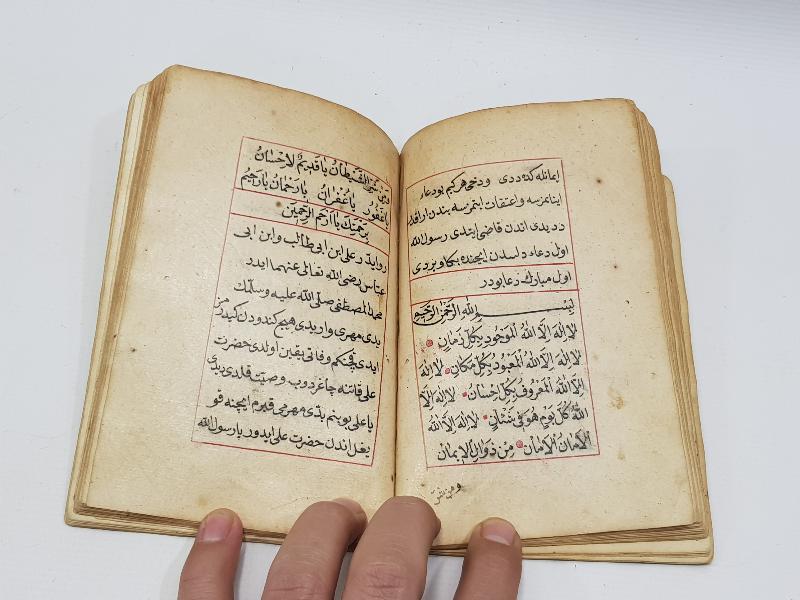 ايمانله كيده دى ودخى هر كيم بو دعاء
اينانمزسه واعتقاد ايتمزسه بندن ايراقدر
ديدى اندن قاضى ايتدى رسول الله
اول دعاء دلسدن ايچنده بكا ويردى
اول مبارك دعا بودر
بسم الله الرحمن الرحيم
لا اله الا الله الموجود بكل زمان
لا اله الا الله المعبود بكل مكان لا اله
الا الله المعروف بكل احسان لا اله الا
الله كل يوم هو فى شأن لا اله الا الله
الامان الامان من زوال الايمان
ومن شر
ومن شر الشيطان يا قديم الاحسان
يا غفور يا غفران يا رحمان يا رحيم
برحمتك يا ارحم الراحمين
روايتدر على ابن ابى طالب وابن ابى
عباس رضى الله تعالى عنهما ايدر
محمد المصطفى صلى الله عليه وسلمك
يدى مهرى وار يدى هيچ كندودن كيدرمز
ايدى چنكم وفاتى يقين اولدى حضرت
على قاتنه چاغردوب وصيت قلدى ديدى
يا على بوينم يدى مهرمى قبرم ايچنه قو
يغل اندن حضرت على ايدور يا رسول الله